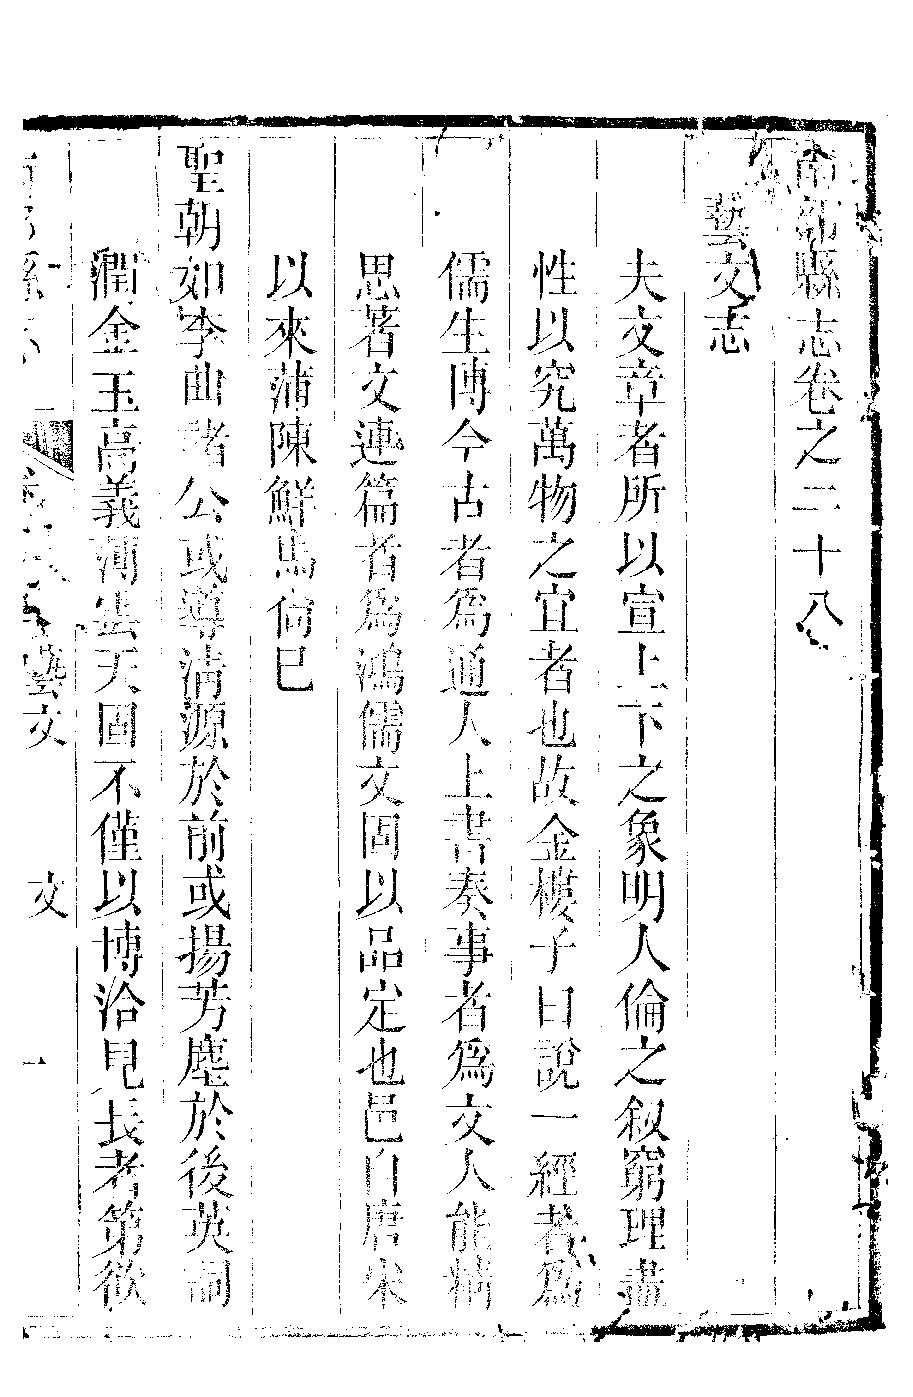 南部縣志卷之二十八
藝文志
夫文章者所以宣上下之象明人倫之叙窮理盡
性以究萬物之宜者也故金樓子曰說一經者爲
儒生博今古者爲通人上書奏事者爲文人能精
思著文連篇者爲鴻儒文固以品定也邑自唐宋
以來蒲陳鮮馬尙已
聖朝如李曲諸公或導淸源於前或揚芳塵於後英詞
潤金玉高義薄雲天固不僅以博洽見長者第欲
南部縣志
卷 藝文 文 一